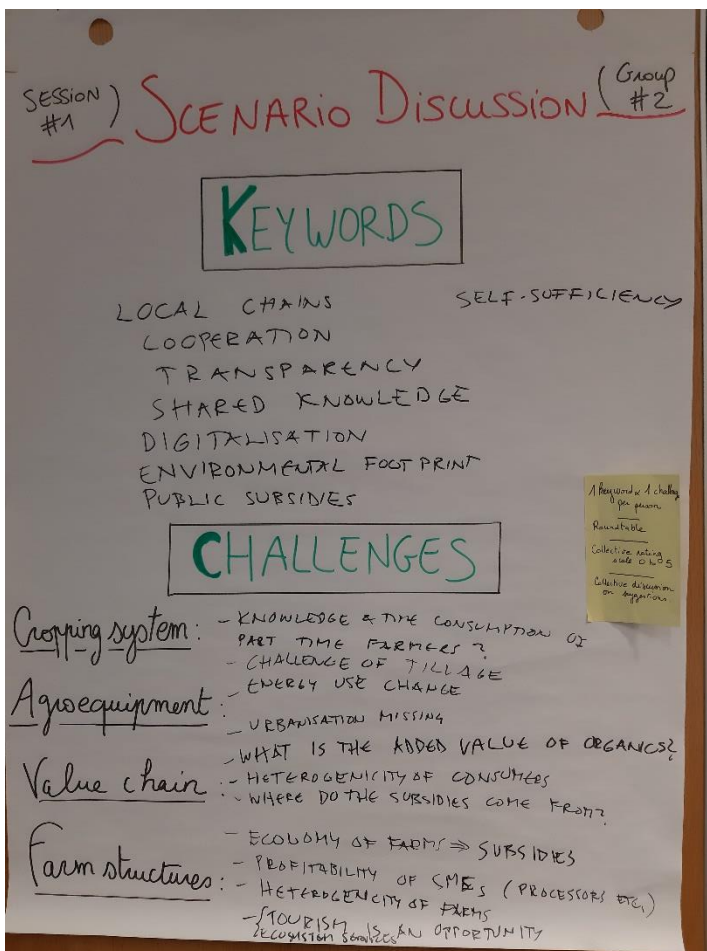 SESSION #1) SCENARIO DISCUSSION (Group #2
KEYWORDS
LOCAL CHAINS
SELF-SUFFICIENCY
COOPERATION
TRANSPARENCY
SHARED KNOWLEDGE
DIGITALISATION
ENVIRONMENTAL FOOTPRINT
PUBLIC SUBSIDIES
1 keyword & 1 challenge
per person
Roundtable
Collective rating
scale 0 to 5
Collective discussion
on suggestions
CHALLENGES
Cropping system: - KNOWLEDGE & TIME CONSUMPTION OF
PART TIME FARMERS?
- CHALLENGE OF TILLAGE
Agroequipment: - ENERGY USE CHANGE
- URBANISATION MISSING
Value chain: - WHAT IS THE ADDED VALUE OF ORGANICS?
- HETEROGENICITY OF CONSUMERS
- WHERE DO THE SUBSIDIES COME FROM?
Farm structures: - ECONOMY OF FARMS ⇒ SUBSIDIES
- PROFITABILITY OF SMEs (PROCESSORS ETC.)
- HETEROGENCITY OF FARMS
- TOURISM IS AN OPPORTUNITY
ECOSYSTEM SERVICES